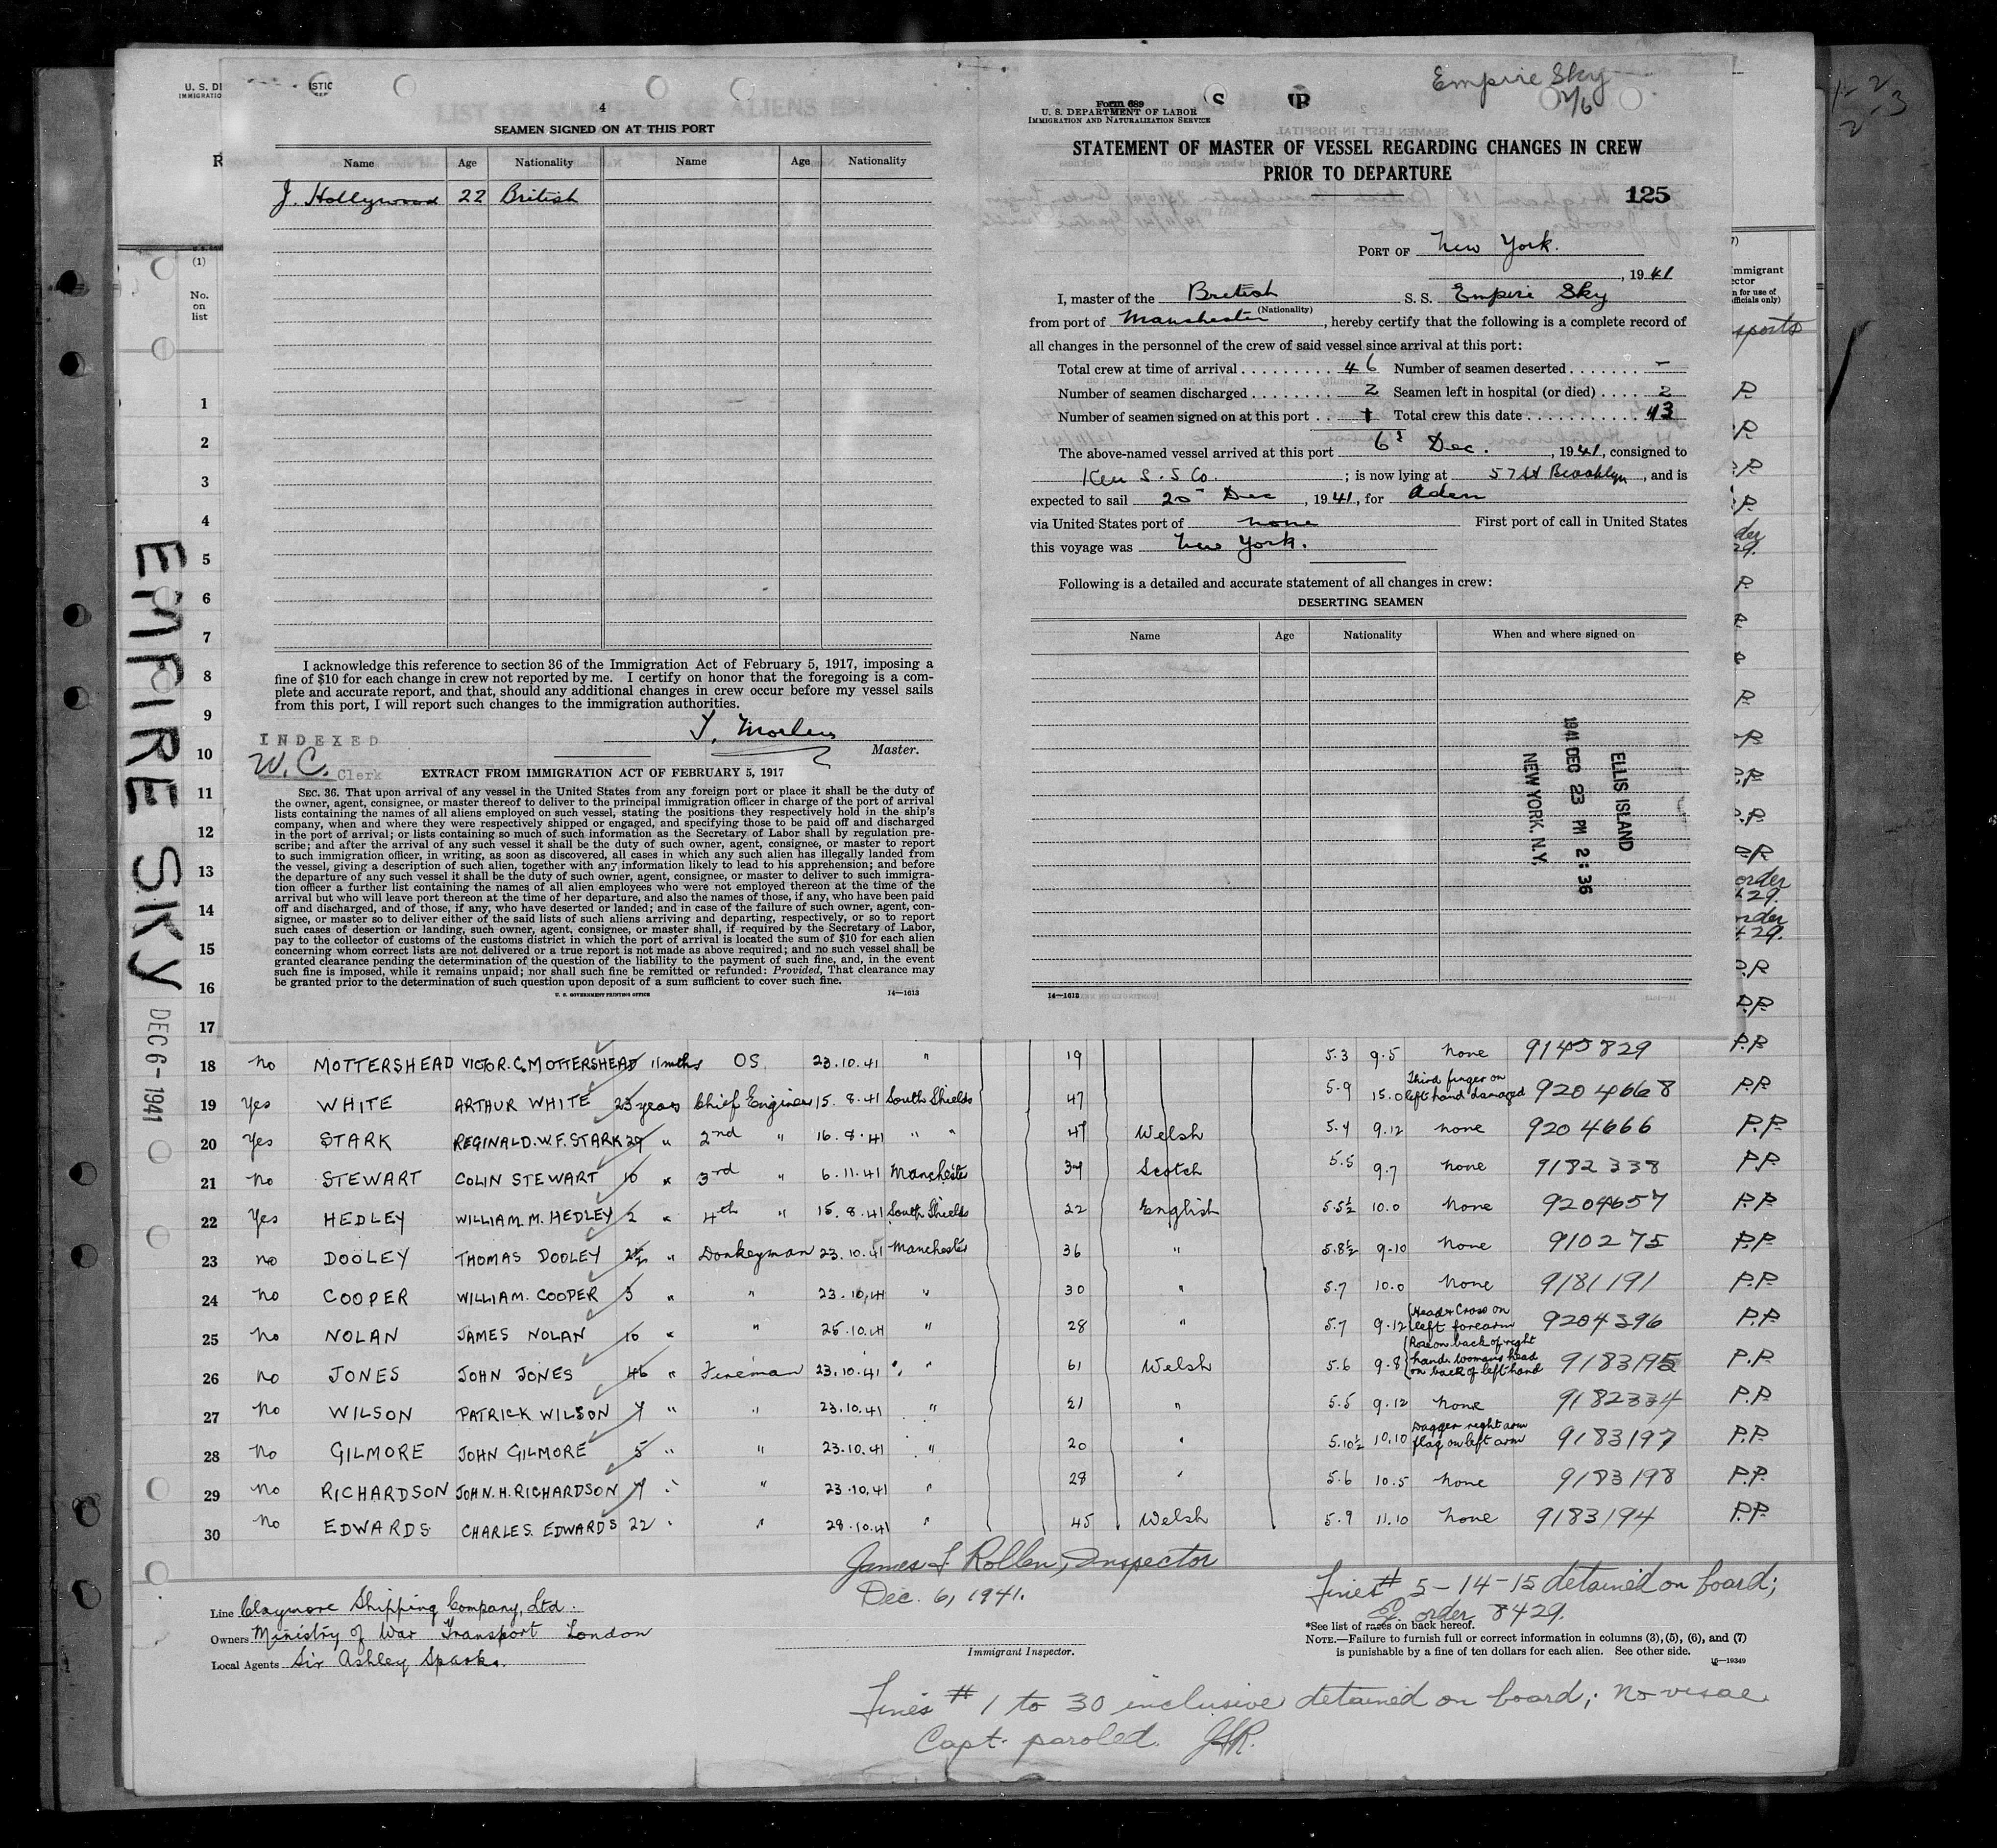 U. S. DE
IMMIGRATIO
4
SEAMEN SIGNED ON AT THIS PORT
Name Age Nationality Name Age Nationality
J. Hollywood 22 British
I acknowledge this reference to section 36 of the Immigration Act of February 5, 1917, imposing a
fine of $10 for each change in crew not reported by me. I certify on honor that the foregoing is a com-
plete and accurate report, and that, should any additional changes in crew occur before my vessel sails
from this port, I will report such changes to the immigration authorities.
INDEXED
W.C. Clerk
Master.
EXTRACT FROM IMMIGRATION ACT OF FEBRUARY 5, 1917
SEC. 36. That upon arrival of any vessel in the United States from any foreign port or place it shall be the duty of
the owner, agent, consignee, or master thereof to deliver to the principal immigration officer in charge of the port of arrival
lists containing the names of all aliens employed on such vessel, stating the positions they respectively hold in the ship's
company, when and where they were respectively shipped or engaged, and specifying those to be paid off and discharged
in the port of arrival; or lists containing so much of such information as the Secretary of Labor shall by regulation pre-
scribe; and after the arrival of any such vessel it shall be the duty of such owner, agent, consignee, or master to report
to such immigration officer, in writing, as soon as discovered, all cases in which any such alien has illegally landed from
the vessel, giving a description of such alien, together with any information likely to lead to his apprehension; and before
the departure of any such vessel it shall be the duty of such owner, agent, consignee, or master to deliver to such immigra-
tion officer a further list containing the names of all alien employees who were not employed thereon at the time of the
arrival but who will leave port thereon at the time of her departure, and also the names of those, if any, who have been paid
off and discharged, and of those, if any, who have deserted or landed; and in case of the failure of such owner, agent, con-
signee, or master so to deliver either of the said lists of such aliens arriving and departing, respectively, or so to report
such cases of desertion or landing, such owner, agent, consignee, or master shall, if required by the Secretary of Labor,
pay to the collector of customs of the customs district in which the port of arrival is located the sum of $10 for each alien
concerning whom correct lists are not delivered or a true report is not made as above required; and no such vessel shall be
granted clearance pending the determination of the question of the liability to the payment of such fine, and, in the event
such fine is imposed, while it remains unpaid; nor shall such fine be remitted or refunded: Provided, That clearance may
be granted prior to the determination of such question upon deposit of a sum sufficient to cover such fine.
U. S. GOVERNMENT PRINTING OFFICE 14—1613
Empire Sky
Form 689
U. S. DEPARTMENT OF LABOR
IMMIGRATION AND NATURALIZATION SERVICE
STATEMENT OF MASTER OF VESSEL REGARDING CHANGES IN CREW
PRIOR TO DEPARTURE
125
PORT OF New York.
, 1941
I, master of the British S. S. Empire Sky
(Nationality)
from port of Manchester, hereby certify that the following is a complete record of
all changes in the personnel of the crew of said vessel since arrival at this port:
Total crew at time of arrival 46 Number of seamen deserted –
Number of seamen discharged 2 Seamen left in hospital (or died) 2
Number of seamen signed on at this port 1 Total crew this date 43
The above-named vessel arrived at this port 6 Dec., 1941, consigned to
Kerr S.S Co.; is now lying at 57 St Brooklyn, and is
expected to sail 20 Dec, 1941, for Aden
via United States port of none First port of call in United States
this voyage was New York.
Following is a detailed and accurate statement of all changes in crew:
DESERTING SEAMEN
Name Age Nationality When and where signed on
ELLIS ISLAND
1941 DEC 23 PM 2:36
NEW YORK, N.Y.
14—1613
EMPIRE SKY DEC 6-1941
(1)
No.
on
list
1
2
3
4
5
6
7
8
9
10
11
12
13
14
15
16
17
18 No MOTTERSHEAD VICTOR. C. MOTTERSHEAD 11 mths OS 23.10.41 " 19 5.3 9.5 None 9145829 P.P.
19 Yes WHITE ARTHUR WHITE 25 years Chief Engineer 15.8.41 South Shields 47 5.9 15.0 Third finger on left hand damaged 9204668 P.P.
20 Yes STARK REGINALD. W. F. STARK 27 " 2nd " 16.8.41 " " 47 Welsh 5.4 9.12 None 9204666 P.P.
21 No STEWART COLIN STEWART 10 " 3rd " 6.11.41 Manchester 34 Scotch 5.5 9.7 None 9182338 P.P.
22 Yes HEDLEY WILLIAM. M. HEDLEY 2 " 4th " 15.8.41 South Shields 22 English 5.5½ 10.0 None 9204657 P.P.
23 No DOOLEY THOMAS DOOLEY 2½ " Donkeyman 23.10.41 Manchester 36 " 5.8½ 9.10 None 910275 P.P.
24 No COOPER WILLIAM. COOPER 5 " " 23.10.41 " 30 " 5.7 10.0 None 9181191 P.P.
25 No NOLAN JAMES NOLAN 10 " " 25.10.41 " 28 " 5.7 9.12 Head & Cross on left forearm 9204396 P.P.
26 No JONES JOHN JONES 46 " Fireman 23.10.41 " 61 Welsh 5.6 9.8 Rose on back of right hand. Womans head on back of left hand 9183195 P.P.
27 No WILSON PATRICK WILSON 4 " " 23.10.41 " 21 " 5.5 9.12 None 9182334 P.P.
28 No GILMORE JOHN GILMORE 5 " " 23.10.41 " 20 " 5.10½ 10.10 Dagger right arm flag on left arm 9183197 P.P.
29 No RICHARDSON JOHN. H. RICHARDSON 4 " " 23.10.41 " 28 " 5.6 10.5 None 9183198 P.P.
30 No EDWARDS CHARLES. EDWARDS 22 " " 28.10.41 " 45 Welsh 5.9 11.10 None 9183194 P.P.
James F. Rollen, Inspector
Dec. 6, 1941.
Lines # 5-14-15 detained on board;
order 8429.
Line Claymore Shipping Company, Ltd.
Owners Ministry of War Transport London
Local Agents Sir Ashley Sparks.
Immigrant Inspector.
*See list of races on back hereof.
NOTE.—Failure to furnish full or correct information in columns (3), (5), (6), and (7)
is punishable by a fine of ten dollars for each alien. See other side.
16—19349
Lines # 1 to 30 inclusive detained on board; no visae
Capt. paroled.